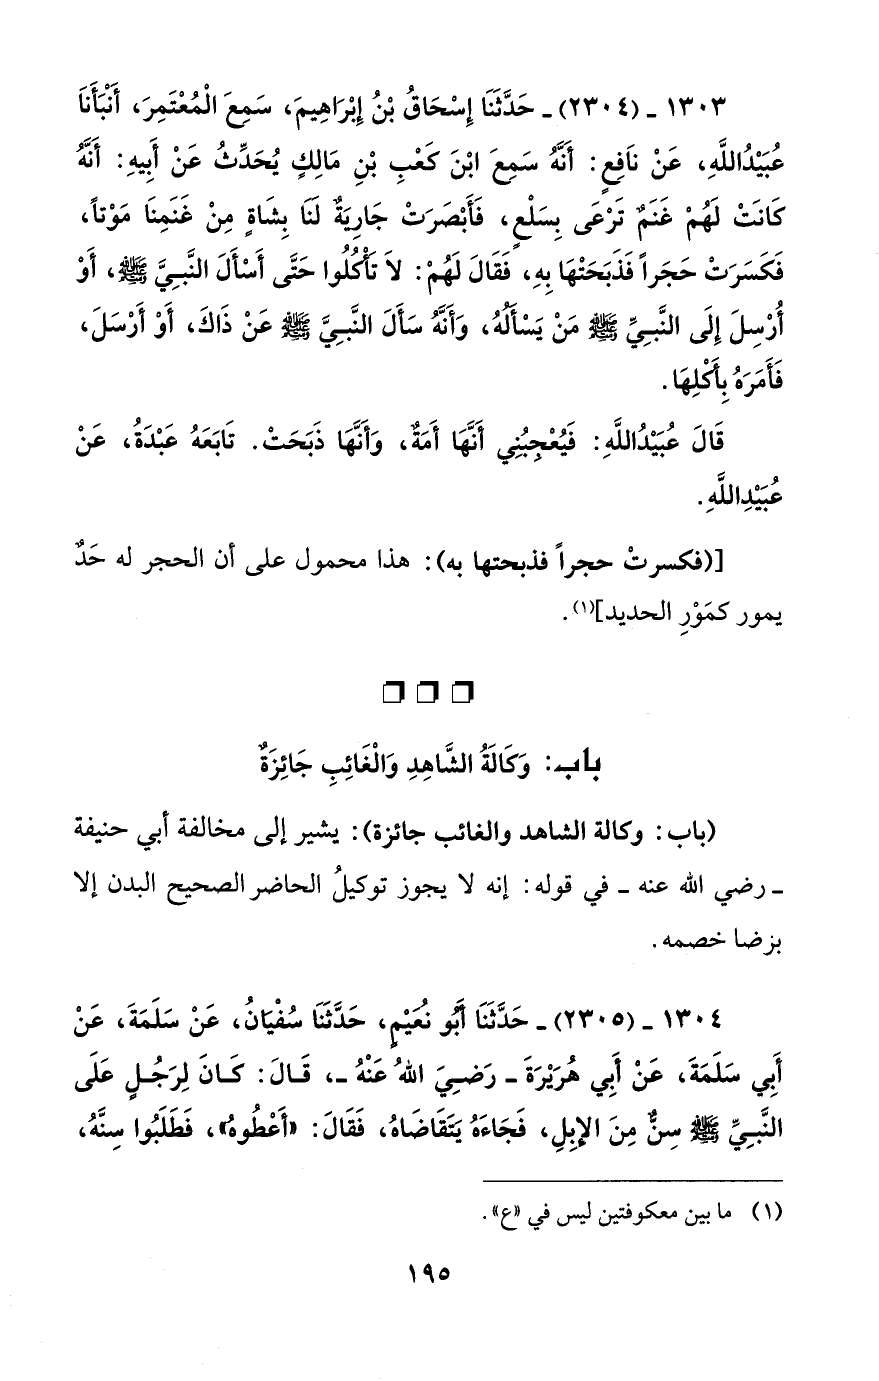 ١٣٠٣ ـ (٢٣٠٤) ـ حَدَّثَنَا إِسْحَاقُ بْنُ إِبْرَاهِيمَ، سَمِعَ الْمُعْتَمِرَ، أَنْبَأَنَا
عُبَيْدُاللَّهِ، عَنْ نَافِعٍ: أَنَّهُ سَمِعَ ابْنَ كَعْبِ بْنِ مَالِكٍ يُحَدِّثُ عَنْ أَبِيهِ: أَنَّهُ
كَانَتْ لَهُمْ غَنَمٌ تَرْعَى بِسَلْعٍ، فَأَبْصَرَتْ جَارِيَةٌ لَنَا بِشَاةٍ مِنْ غَنَمِنَا مَوْتاً،
فَكَسَرَتْ حَجَراً فَذَبَحَتْهَا بِهِ، فَقَالَ لَهُمْ: لاَ تَأْكُلُوا حَتَّى أَسْأَلَ النَّبِيَّ ﷺ، أَوْ
أُرْسِلَ إِلَى النَّبِيِّ ﷺ مَنْ يَسْأَلُهُ، وَأَنَّهُ سَأَلَ النَّبِيَّ ﷺ عَنْ ذَاكَ، أَوْ أَرْسَلَ،
فَأَمَرَهُ بِأَكْلِهَا.
قَالَ عُبَيْدُاللَّهِ: فَيُعْجِبُنِي أَنَّهَا أَمَةٌ، وَأَنَّهَا ذَبَحَتْ. تَابَعَهُ عَبْدَةُ، عَنْ
عُبَيْدِاللَّهِ.
[(فكسرتْ حجراً فذبحتها به): هذا محمول على أن الحجر له حَدٌّ
يمور كمَوْرِ الحديد](١).
❒ ❒ ❒
باب: وَكَالَةُ الشَّاهِدِ وَالْغَائِبِ جَائِزَةٌ
(باب: وكالة الشاهد والغائب جائزة): يشير إلى مخالفة أبي حنيفة
ـ رضي الله عنه ـ في قوله: إنه لا يجوز توكيلُ الحاضر الصحيح البدن إلا
برضا خصمه.
١٣٠٤ ـ (٢٣٠٥) ـ حَدَّثَنَا أَبُو نُعَيْمٍ، حَدَّثَنَا سُفْيَانُ، عَنْ سَلَمَةَ، عَنْ
أَبِي سَلَمَةَ، عَنْ أَبِي هُرَيْرَةَ ـ رَضِيَ اللهُ عَنْهُ ـ، قَالَ: كَانَ لِرَجُلٍ عَلَى
النَّبِيِّ ﷺ سِنٌّ مِنَ الإِبِلِ، فَجَاءَهُ يَتَقَاضَاهُ، فَقَالَ: «أَعْطُوهُ»، فَطَلَبُوا سِنَّهُ،
(١) ما بين معكوفتين ليس في «ع».
١٩٥